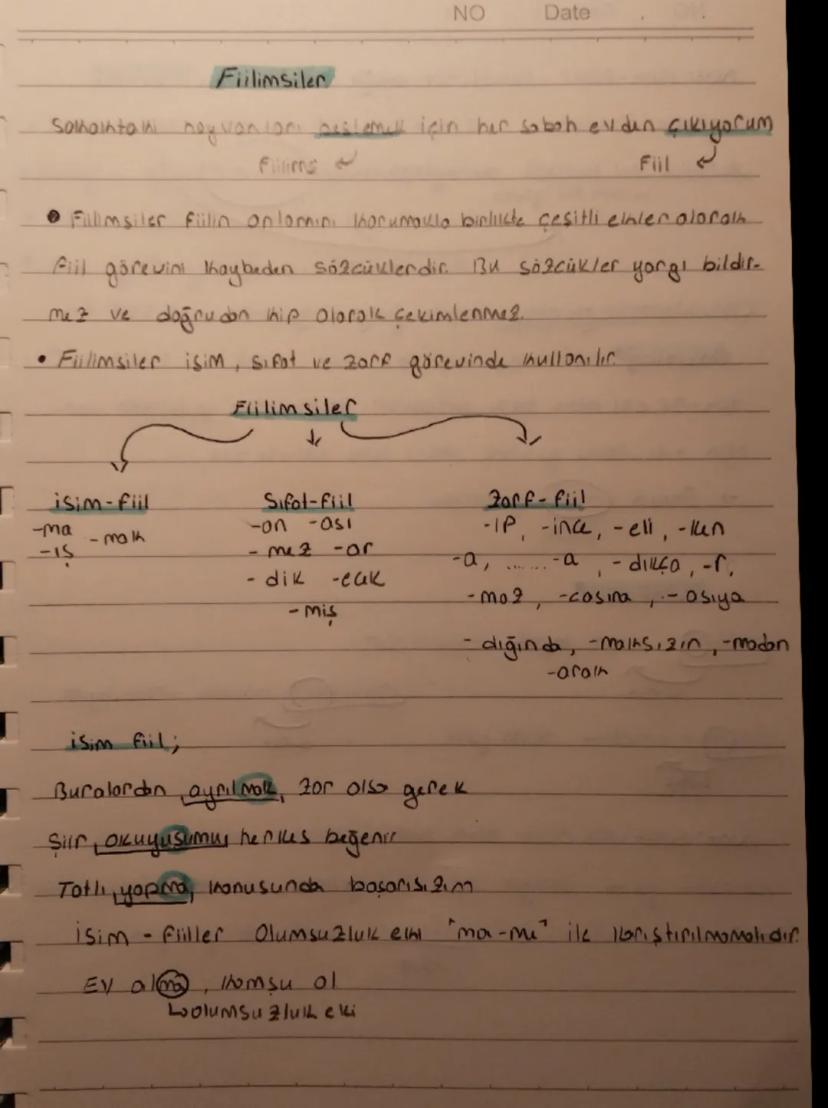 NO Date . .
Fiilimsiler
Sokaktaki hayvanları beslemek için her sabah evden çıkıyorum
Fiilims Fiil
• Fiilimsiler fiilin anlamını korumakla birlikte çeşitli ekler alarak
fiil görevini kaybeden sözcüklerdir. Bu sözcükler yargı bildir-
mez ve doğrudan kip alarak çekimlenmez.
• Fiilimsiler isim, sıfat ve zarf görevinde kullanılır.
Fiilimsiler
isim-fiil Sıfat-fiil Zarf-fiil
-ma -mak -an -ası -ıp, -ince, -eli, -ken
-ış - mez -ar -a, ...... -a, -dıkça, -r,
- dik -ecek -maz, -casına, - asıya
-miş
- dığında, -maksızın, -madan
-arak
isim fiil;
Buralardan ayrılmak, zor olsa gerek
Şiir, okuyuşumu herkes beğenir
Tatlı yapma, konusunda başarısızım
isim - fiiller Olumsuzluk eki "ma-me" ile karıştırılmamalıdır.
Ev alma, komşu al
olumsuzluk eki